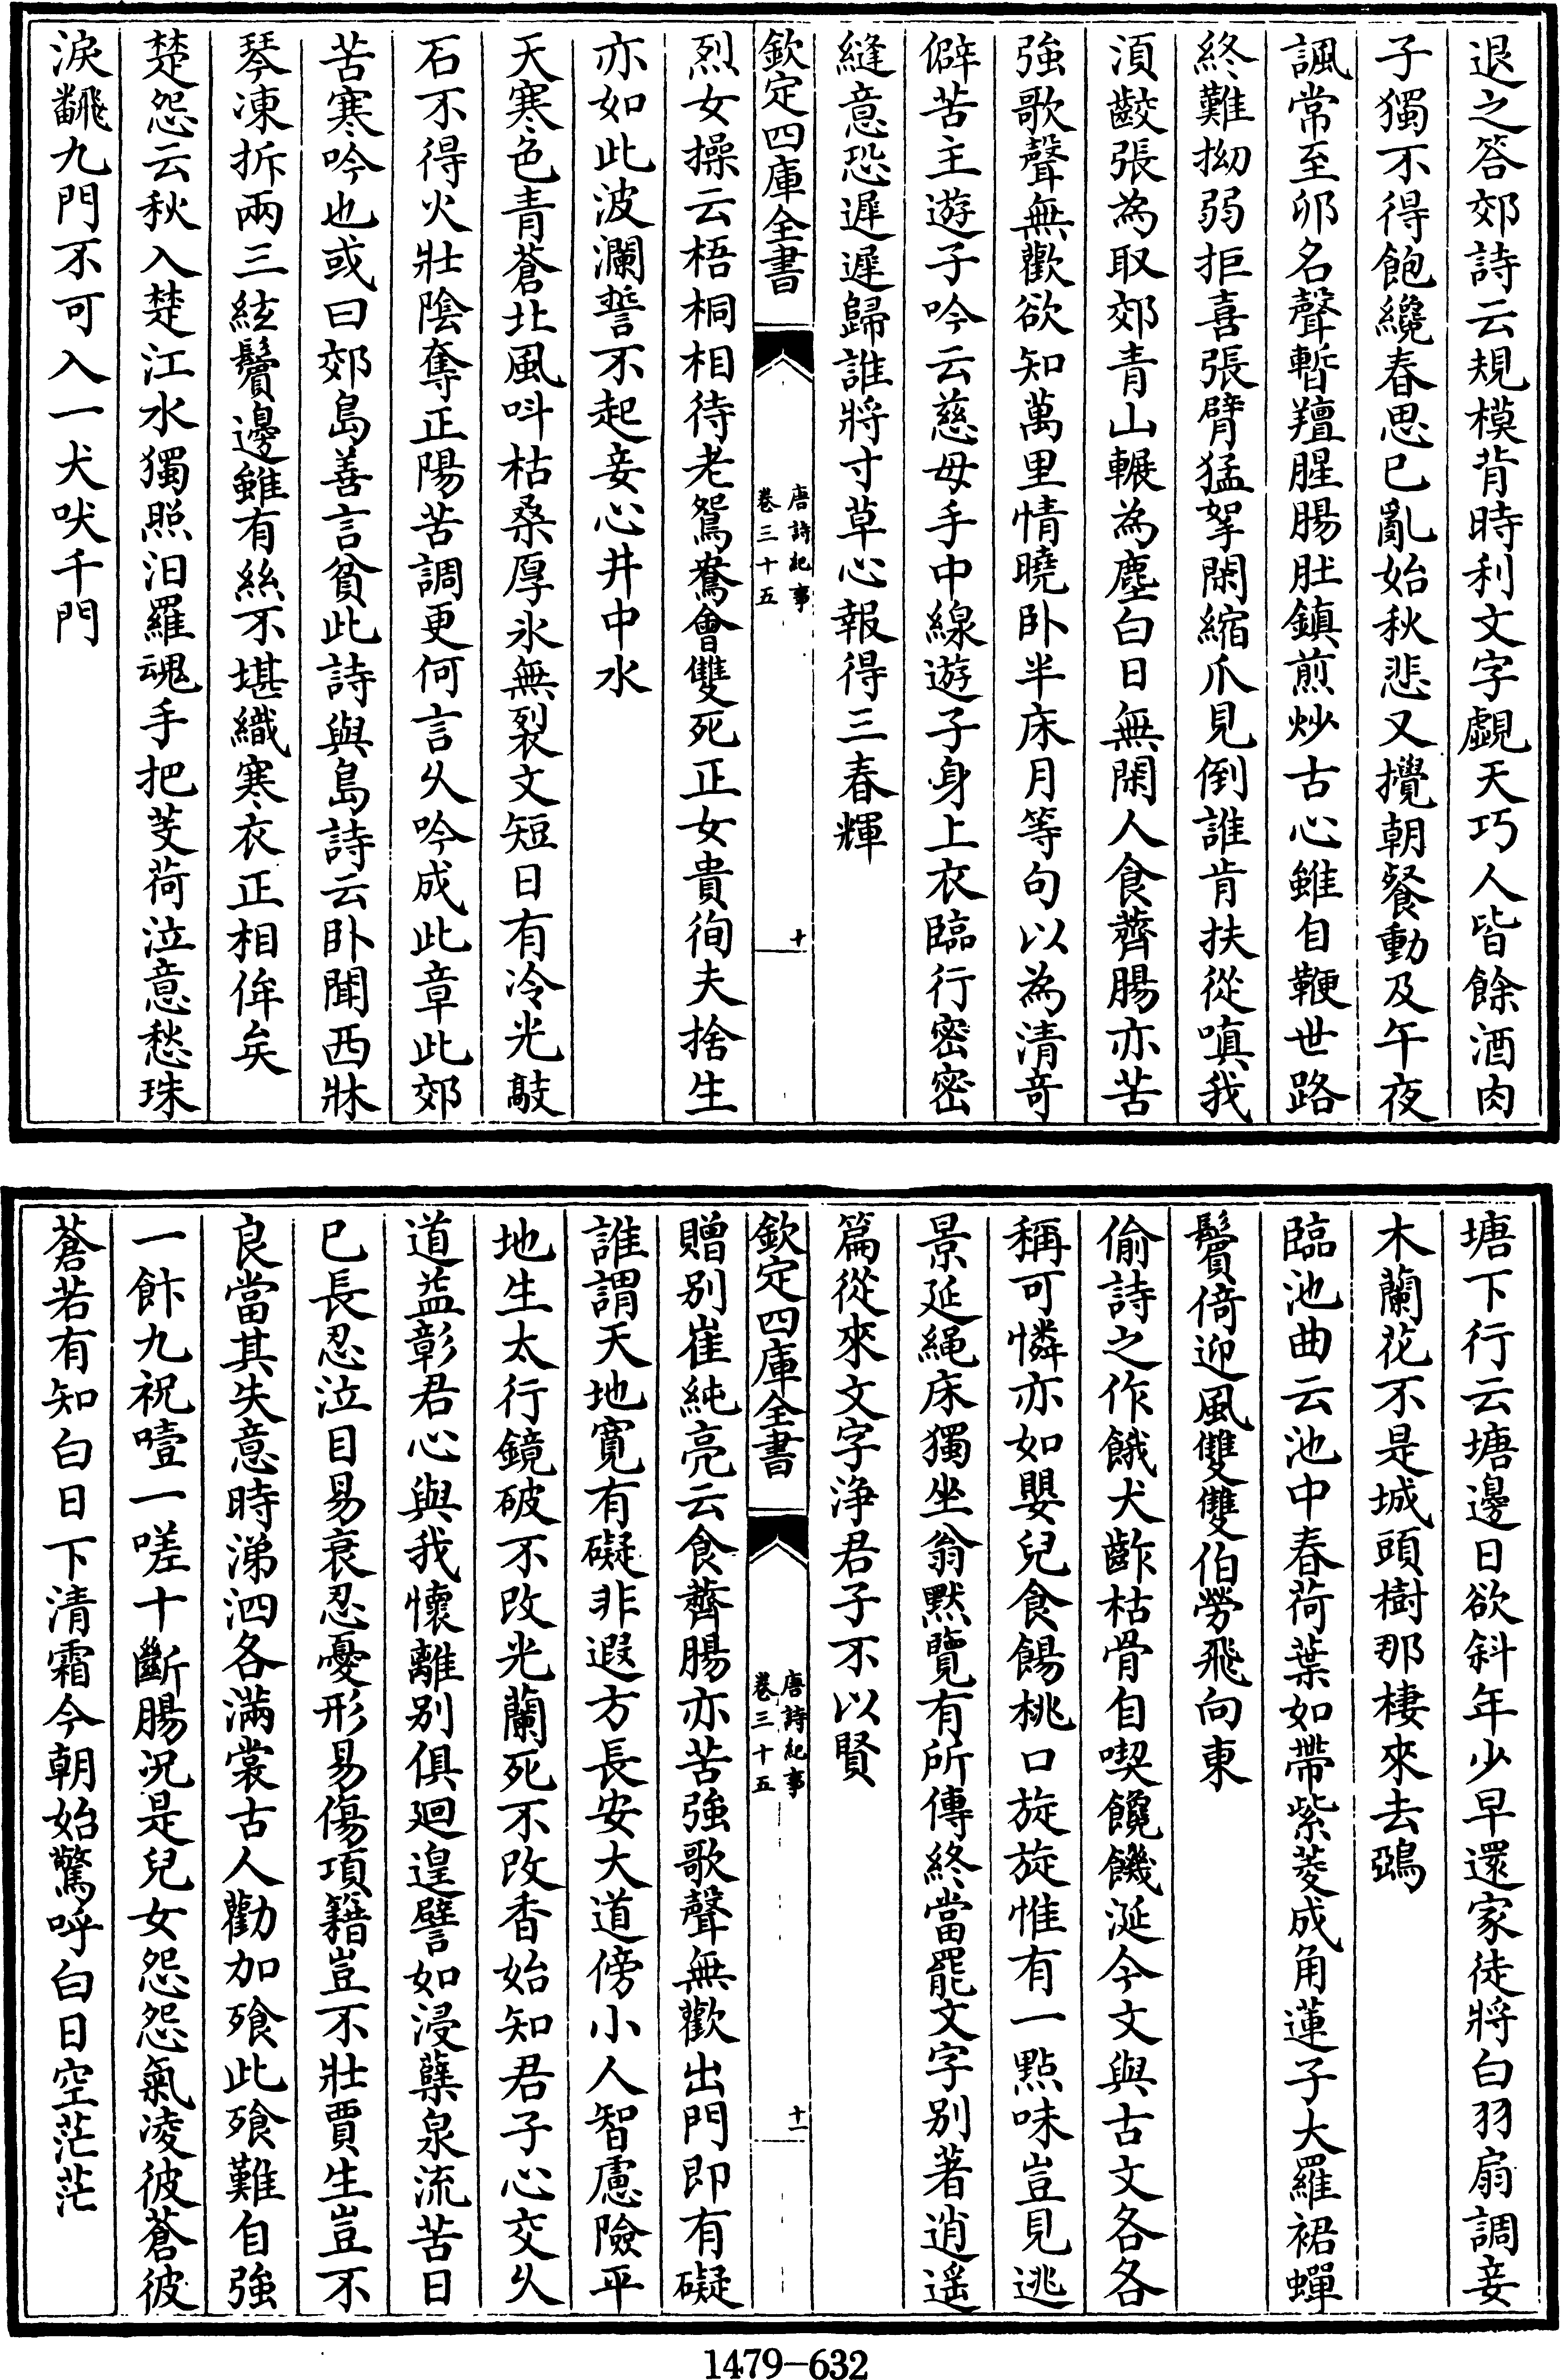 退之答郊詩云規模背時利文字覷天巧人皆餘酒肉
子獨不得飽纔春思已亂始秋悲又攪朝餐動及午夜
諷常至卯名聲暫羶腥腸肚鎮煎炒古心雖自鞭世路
終難拗弱拒喜張臂猛拏閑縮爪見倒誰肯扶從嗔我
須齩張為取郊青山輾為塵白日無閑人食薺腸亦苦
強歌聲無歡欲知萬里情曉卧半床月等句以為清奇
僻苦主遊子吟云慈母手中線遊子身上衣臨行密密
縫意恐遲遲歸誰將寸草心報得三春輝
欽定四庫全書
唐詩紀事
卷三十五
十
烈女操云梧桐相待老鴛鴦會雙死正女貴徇夫捨生
亦如此波瀾誓不起妾心井中水
天寒色青蒼北風呌枯桑厚氷無裂文短日有冷光敲
石不得火壯陰奪正陽苦調更何言乆吟成此章此郊
苦寒吟也或曰郊島善言貧此詩與島詩云卧聞西牀
琴凍折兩三絃鬢邊雖有絲不堪織寒衣正相侔矣
楚怨云秋入楚江水獨照汨羅魂手把芰荷泣意愁珠
淚飜九門不可入一犬吠千門
塘下行云塘邊日欲斜年少早還家徒將白羽扇調妾
木蘭花不是城頭樹那棲來去鵶
臨池曲云池中春荷葉如帶紫菱成角蓮子大羅裙蟬
鬢倚迎風雙雙伯勞飛向東
偷詩之作餓犬齚枯骨自喫饞饑涎今文與古文各各
稱可憐亦如嬰兒食餳桃口旋旋惟有一點味豈見逃
景延繩床獨坐翁默覽有所傳終當罷文字别著逍遥
篇從來文字浄君子不以賢
欽定四庫全書
唐詩紀事
卷三十五
十一
贈别崔純亮云食薺腸亦苦強歌聲無歡出門即有礙
誰謂天地寛有礙非遐方長安大道傍小人智慮險平
地生太行鏡破不改光蘭死不改香始知君子心交乆
道益彰君心與我懷離别俱廻遑譬如浸蘗泉流苦日
已長忍泣目易衰忍憂形易傷項籍豈不壯賈生豈不
良當其失意時涕泗各滿裳古人勸加飱此飱難自強
一飰九祝噎一嗟十斷腸况是兒女怨怨氣凌彼蒼彼
蒼若有知白日下清霜今朝始驚呼白日空茫茫
1479-632